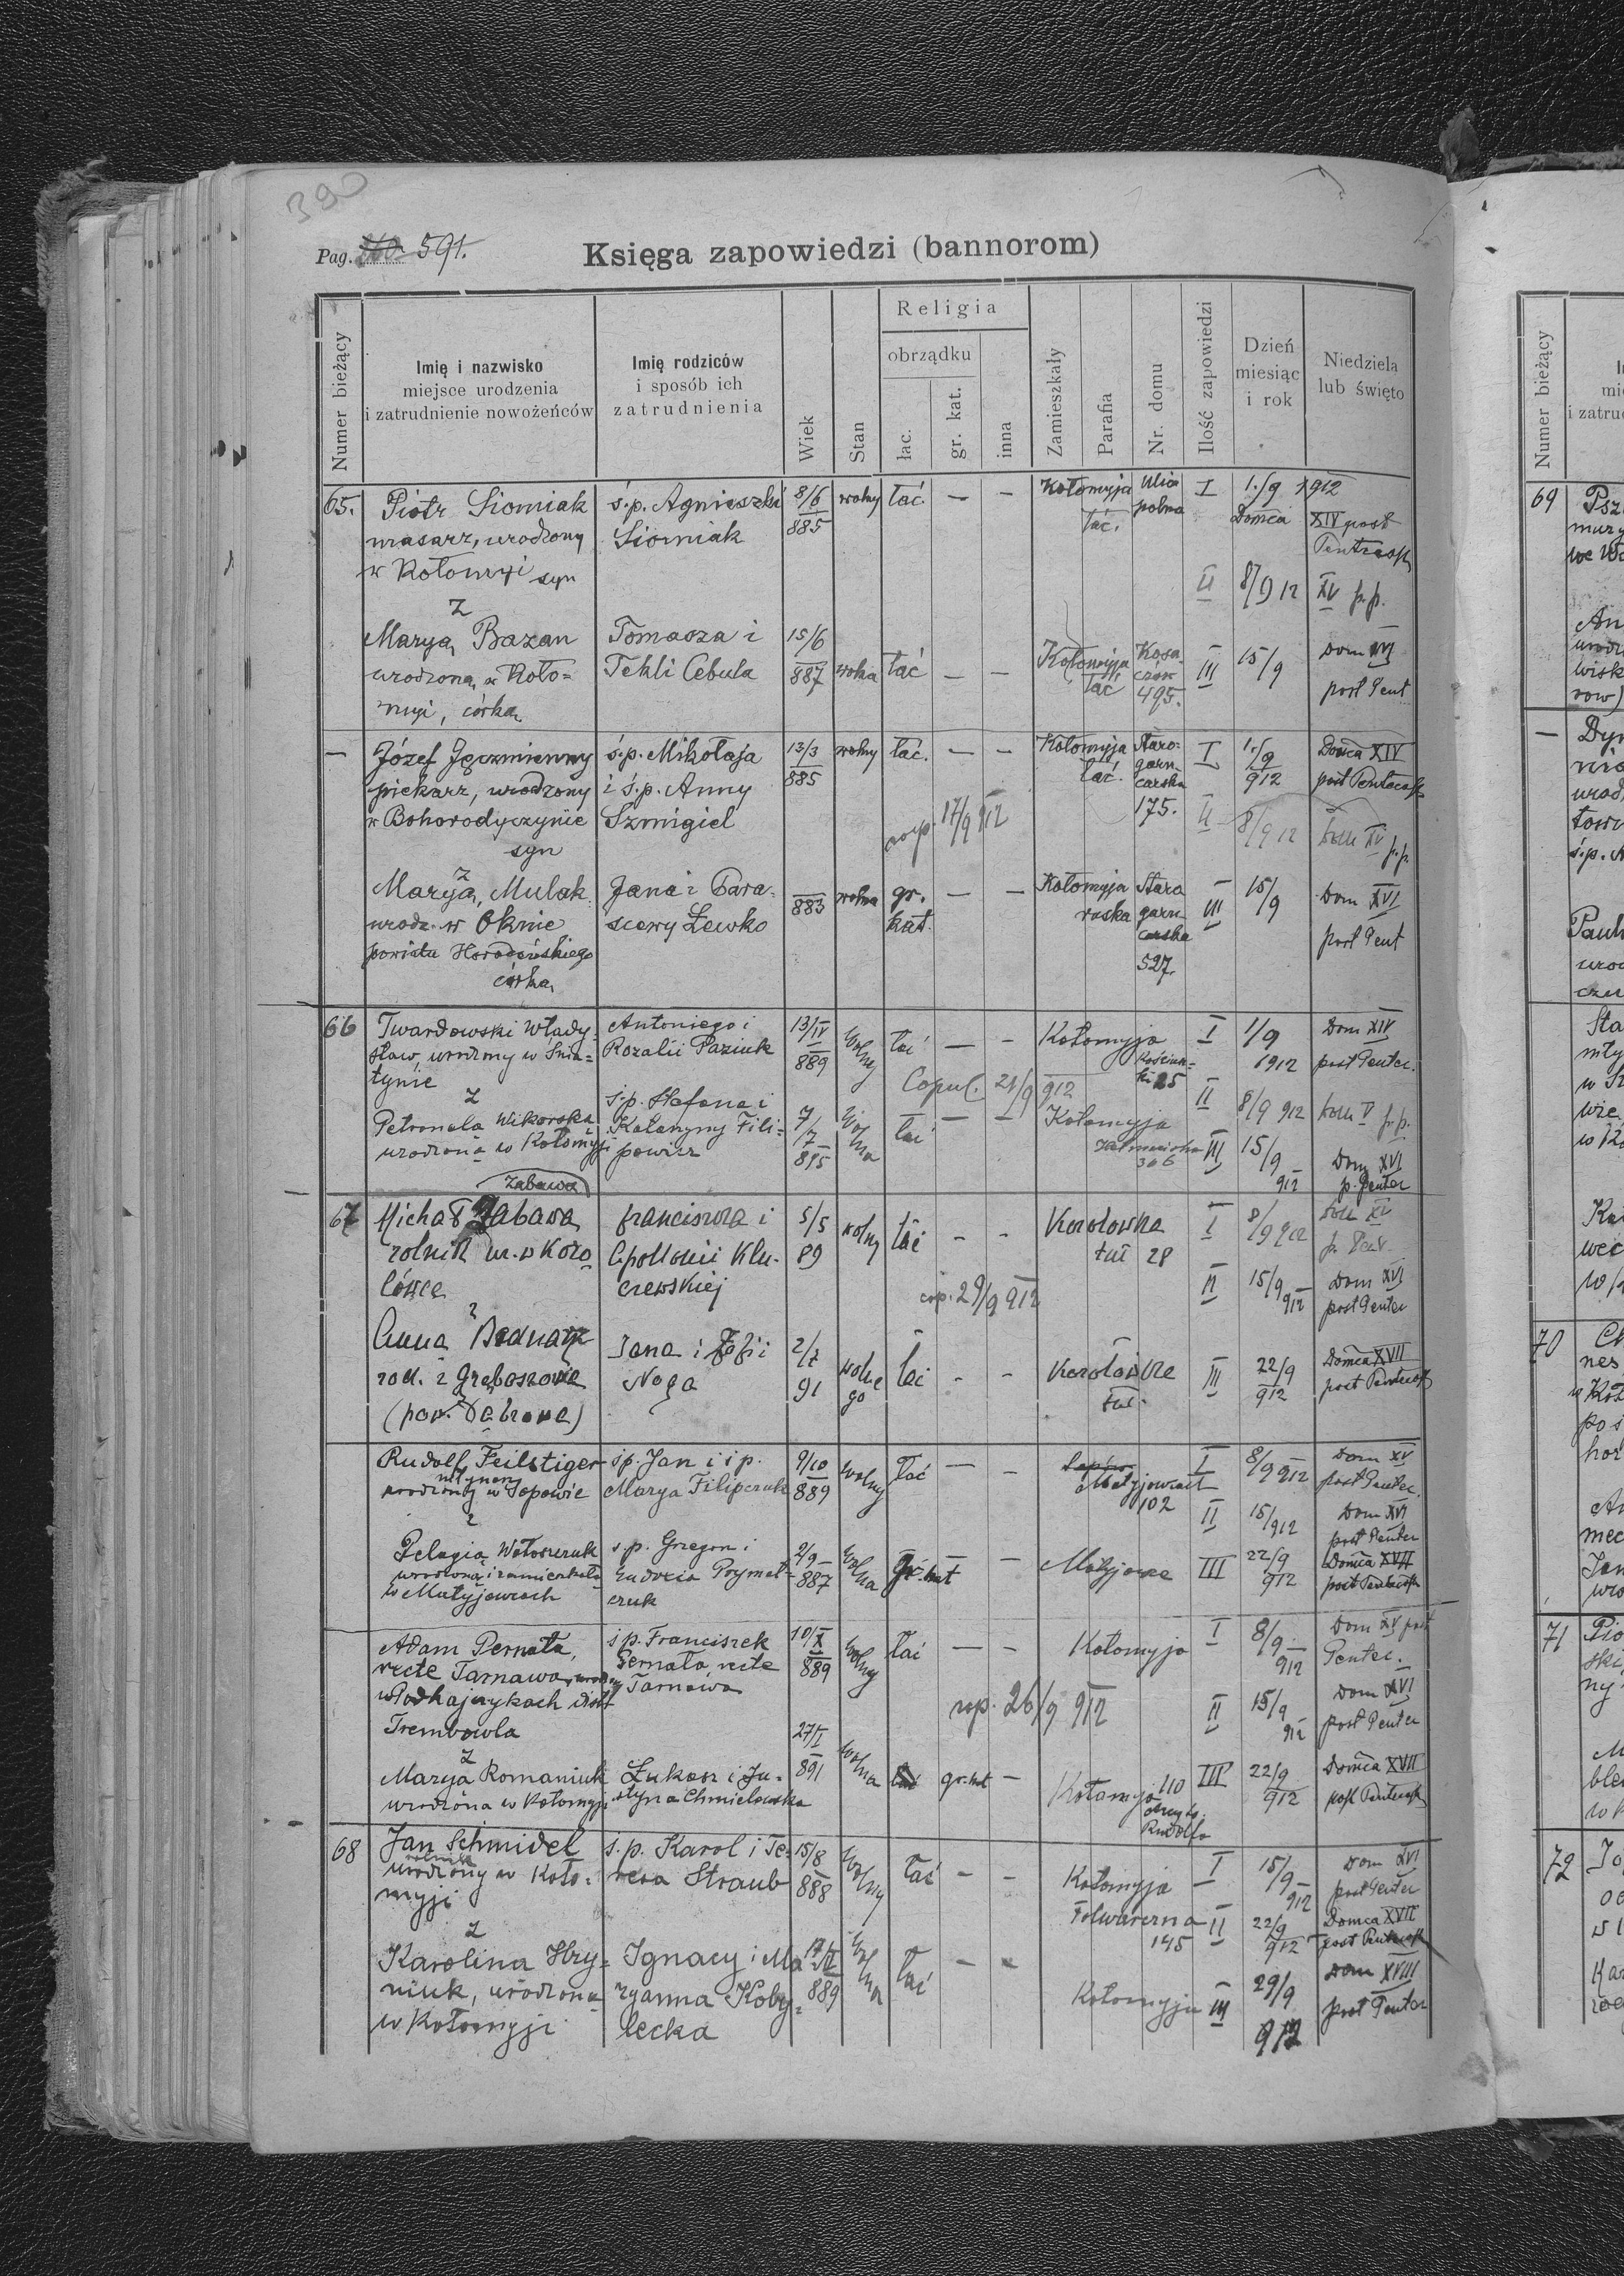 390
Pag. 591.
Księga zapowiedzi (bannorom)
Numer bieżący
Imię i nazwisko
miejsce urodzenia
i zatrudnienie nowożeńców
Imię rodziców
i sposób ich
zatrudnienia
Wiek
Stan
Religia
obrządku
łac.
gr. kat.
inna
Zamieszkały
Parafia
Nr. domu
Ilość zapowiedzi
Dzień
miesiąc
i rok
Niedziela
lub święto
65. Piotr Siomiak ś.p. Agnieszki 8/6 wolny łać. — — Kołomyja Ulica I 1./9 1912
masarz, urodzony Siomiak 885 łać. polna Domca XIV post
w Kołomyi syn Pentecost
II 8/9 12 XV p.p.
z
Marya Bazan Tomasza i 15/6
urodzona w Koło= Tekli Cebula 887 wolna łać — — Kołomyja łać Kosa- czów 495. III 15/9 Dom XVI
myi, córka post Pent
— Józef Jęczmienny ś.p. Mikołaja 13/3 wolny łać. — — Kołomyja Staro- I 1./9 Domca XIV
piekarz, urodzony i ś.p. Anny 885 łać. garn- carska 912 post Pentecost
w Bohorodyczynie Szmigiel cop. 17/9 912 175. II 8/9 12 Dom XV p.p.
syn
z
Marya Mulak Jana i Para- 883 wolna gr. — — Kołomyja Staro III 15/9 Dom XVI
urodz. w Oknie scewy Lewko kat. ruska garn- carska post Pent
powiatu Horodeńskiego 527.
córka
66 Twardowski Włady- Antoniego i 13/IV wolny łać — — Kołomyja I 1/9 Dom XIV
sław, urodzony w Śnia= Rozalii Paziuk 889 25 1912 post Pentec.
tynie Copul. 21/9 912
z ś.p. Stefana i II 8/9 912 Dom V p.p.
Petronela Wikorska Katarzyny Fili= 7/7 wolna łać — — Kołomyja
urodzona w Kołomyji powicz 895 306 III 15/9 912 Dom XVI
p. Pentec
Zabawa
67 Michał Zabawa Franciszka i 5/5 wolny łać - - Korolówka I 8/9 912 Dom XV
rolnik ur. w Koro Apolonii Klu- 89 28 p. Pent.
lówce czewskiej cop. 29/9 912 II 15/9 912 Dom XVI
post Pentec
z
Anna Bednarz Jana i Zofii 2/7
rod. z Gręboszowa Noga 91 łać - - III 22/9 912 Domca XVII
(pow. Dąbrowa) post Pentecost
Rudolf Feilstiger ś.p. Jan i ś.p. 9/10 wolny łać — — I 8/9 912 Dom XV
młynarz
urodzony w Sopowie Marya Filipczuk 889 Matyjowcach post Pentec.
102 II 15/912 Dom XVI
z post Pentec
Pelagia Wołoszczuk ś.p. Grzegorz i 2/9 wolna gr. kat — Matyjowce III 22/9 Domca XVII
urodzona i zamieszkała Eudocia Prymat- 887 912 post Pentecost
w Matyjowcach czuk
Adam Pernata, ś.p. Franciszek 10/X wolny łać — — Kołomyja I 8/9 912 Dom XV post
recte Tarnawa, urodzony Pernata, recte 889 Pentec.
w Podhajczykach distr Tarnawa cop. 26/9 912 II 15/9 912 Dom XVI
Trembowla post Pentec
z 27/I
Marya Romaniuk Łukasz i Ju- 891 wolna gr. kat — Kołomyja 110 III 22/9 Domca XVII
urodzona w Kołomyji styna Chmielowska Rudolfa 912 post Pentecost
68 Jan Schmidel ś.p. Karol i Te- 15/8 wolny łać - - Kołomyja I 15/9 912 Dom XVI
rolnik
urodzony w Koło= resa Straub 888 post Pentec
myji Folwarczna 145 II 22/9 912 Domca XVII
post Pentecost
z
Karolina Hry- Ignacy i Ma- 17/ wolna łać — — Kołomyja III 29/9 Dom XVIII
niuk, urodzona ryanna Koby- 889 912 post Pentec
w Kołomyji lecka
Numer bieżący
69
70
71
72